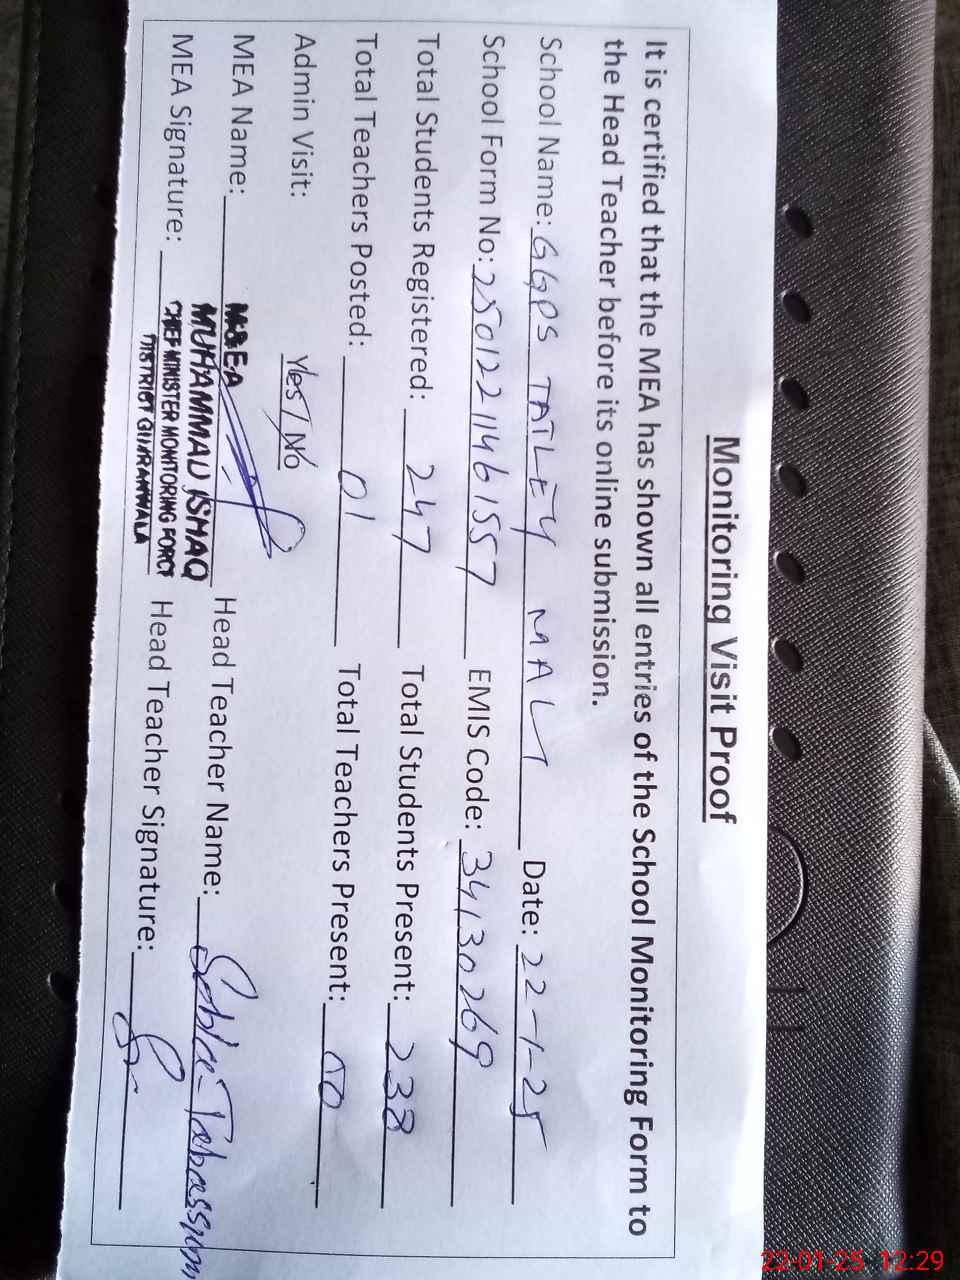 Monitoring Visit Proof
It is certified that the MEA has shown all entries of the School Monitoring Form to
the Head Teacher before its online submission.
School Name: GGPS TATLEY MALI Date: 22-1-25
School Form No: 2501221146157 EMIS Code: 34130269
Total Students Registered: 247 Total Students Present: 238
Total Teachers Posted: 01 Total Teachers Present: 00
Admin Visit: Yes/No
MEA Name: M&EA Head Teacher Name: Tabassum
MUHAMMAD ISHAQ
MEA Signature: CHIEF MINISTER MONITORING FORCE Head Teacher Signature:
DISTRICT GUJRANWALA
22-01-25 12:29